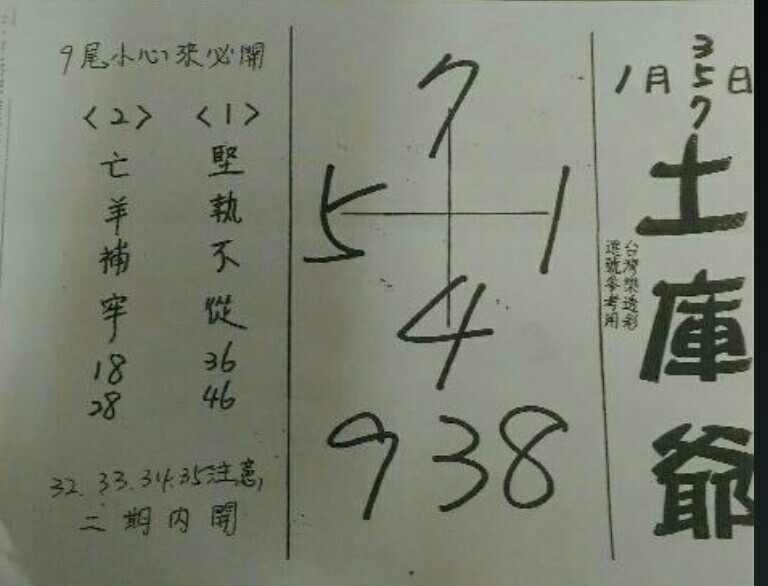 1月 3 5 7 日
土庫爺
台灣樂透彩
選號參考用
7
5 1
4
938
9尾小心來必開
<1>
堅執不從
36
46
<2>
亡羊補牢
18
28
32.33.34.35注意,
二期內開